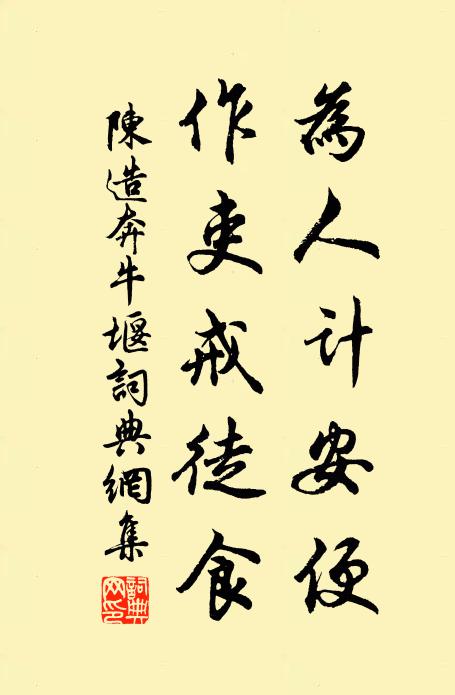 為人計安便
作吏戒徒食
陳造奔牛堰詞典網集
詞典網印